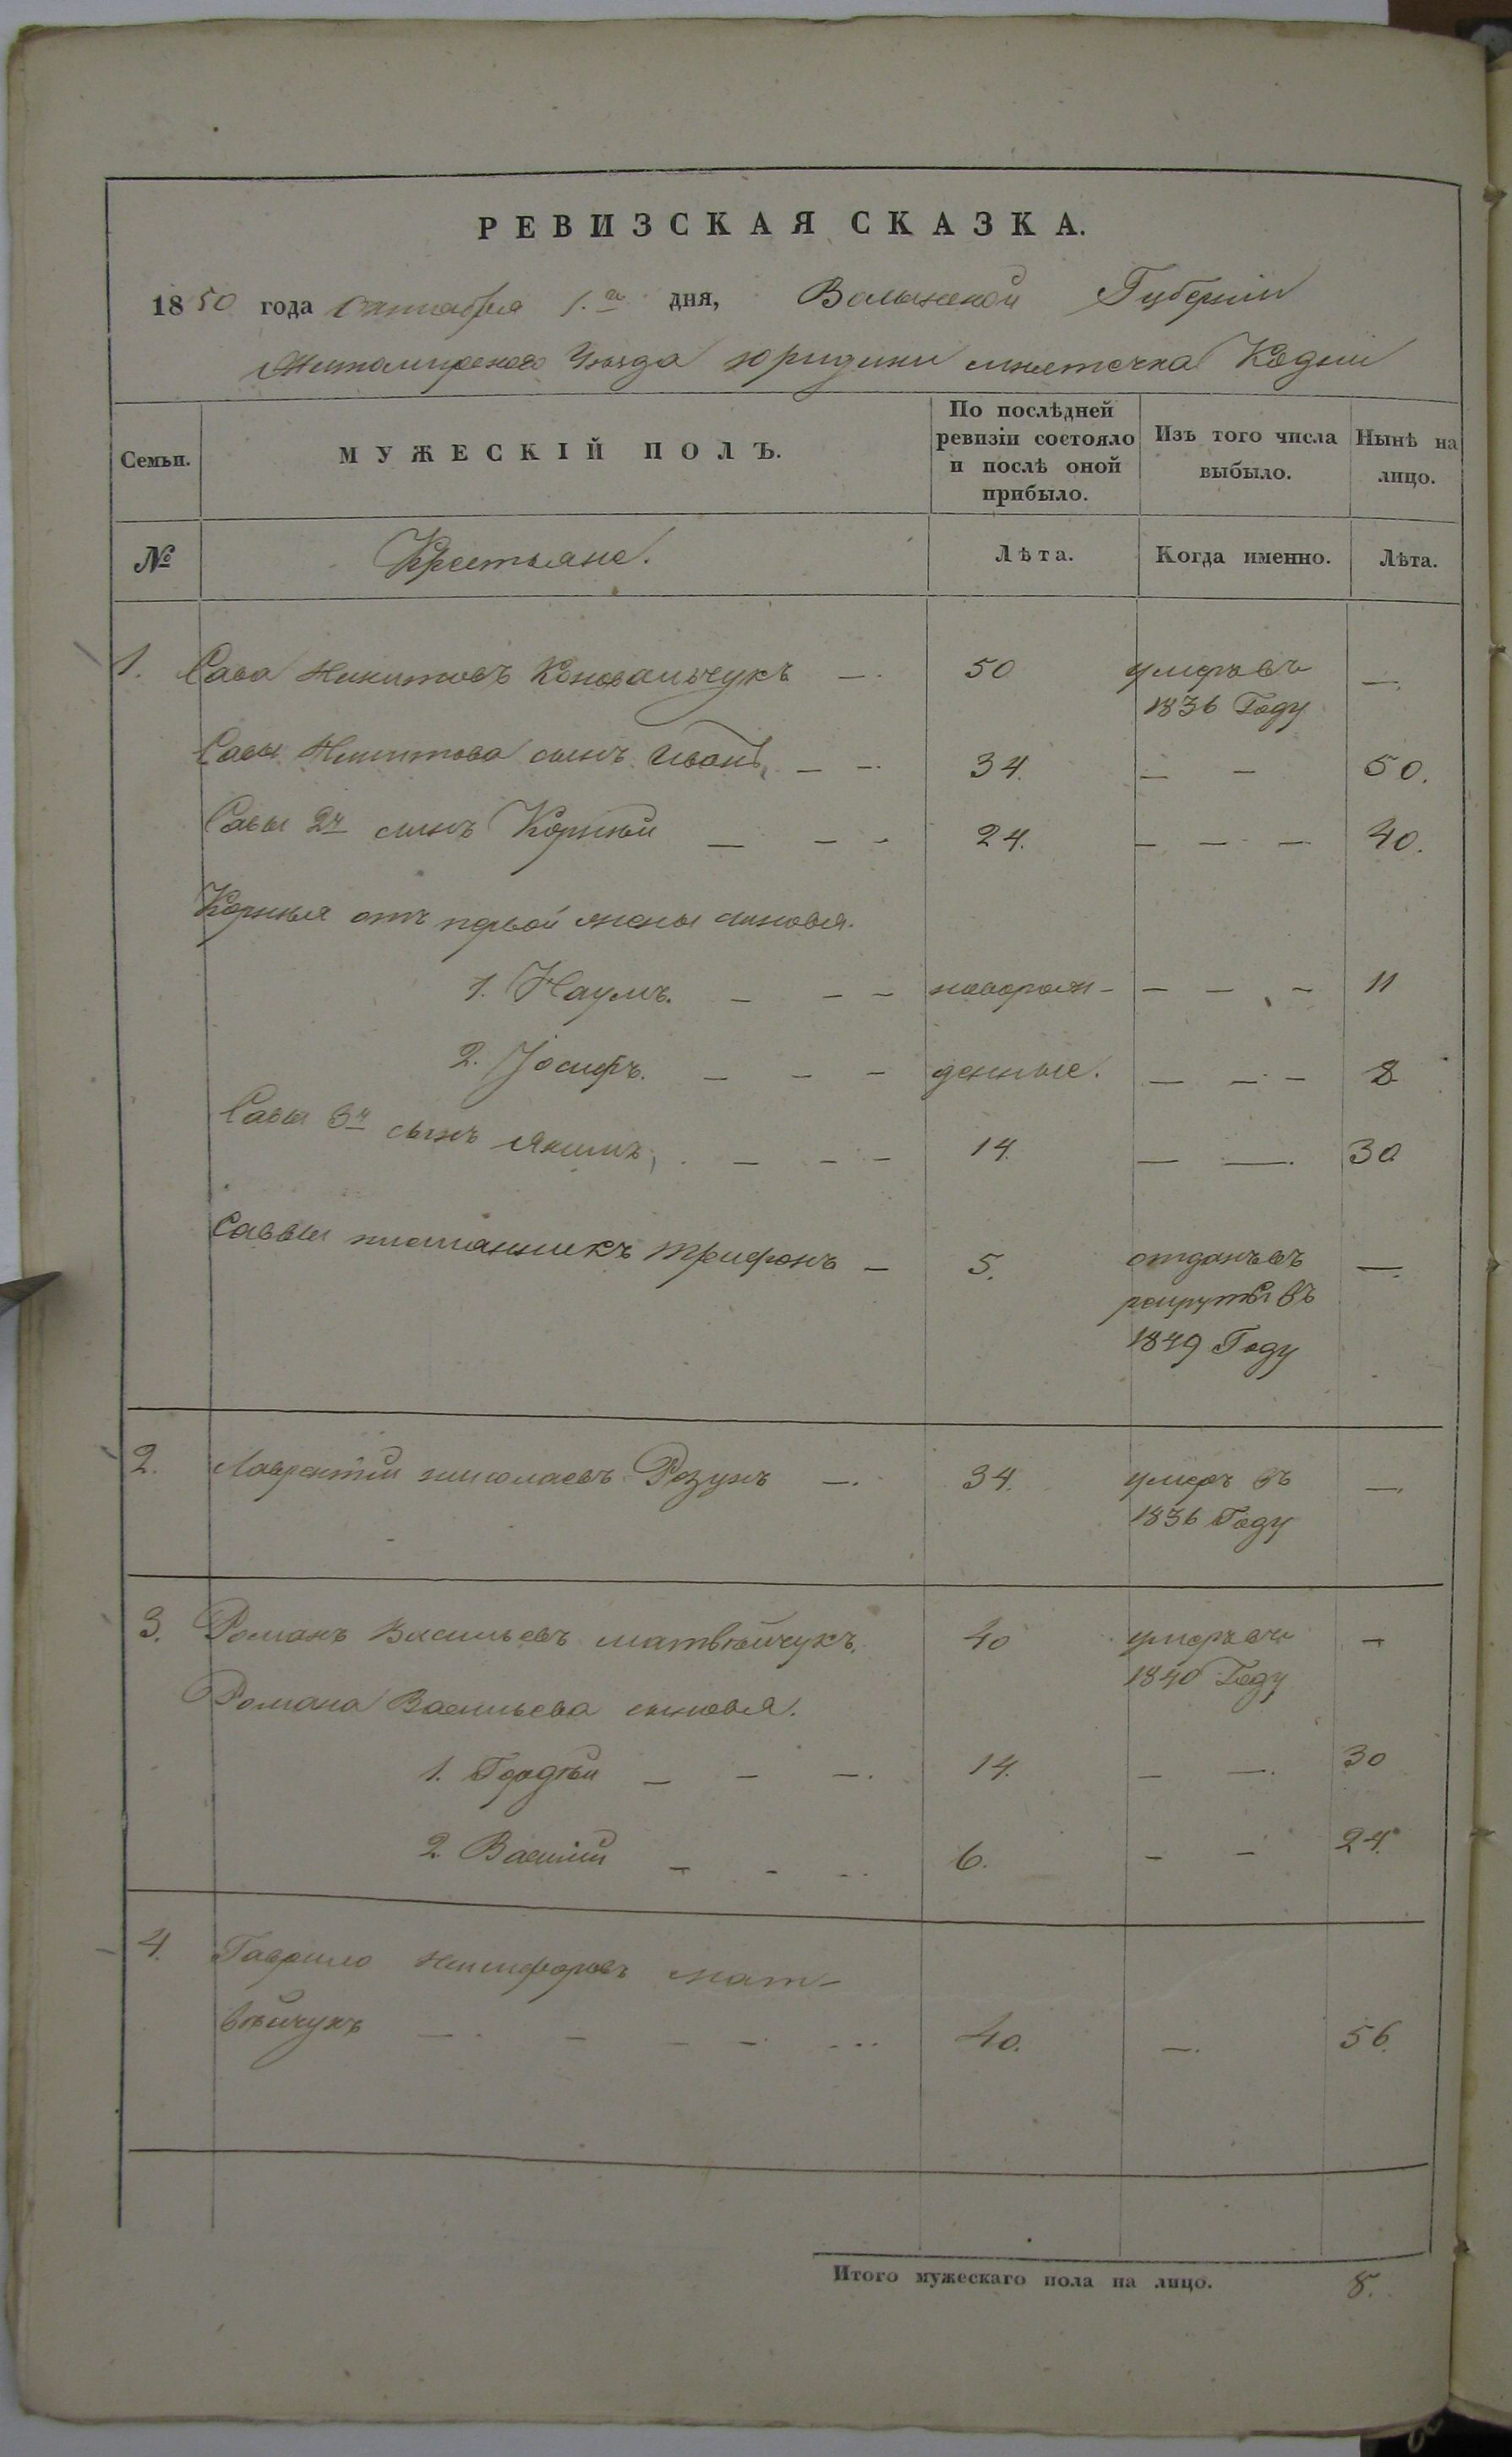 РЕВИЗСКАЯ СКАЗКА.
1850 года Октября 1.го дня, Волынской Губерніи
Житомирского Уѣзда юридики мѣстечка Кодни
Семьи. МУЖЕСКІЙ ПОЛЪ. По послѣдней ревизіи состояло и послѣ оной прибыло. Изъ того числа выбыло. Нынѣ на лицо.
№ Крестьяне. Лѣта. Когда именно. Лѣта.
1. Сава Никитовъ Коновальчукъ — 50 умеръ въ —
1836 Году
Савы Никитова сынъ Иванъ — — 34. — — 50.
Савы 2й сынъ Корнѣй — — — 24. — — — 40.
Корнѣя отъ первой жены сыновья.
1. Наумъ. — — — новорож- — — — 11
2. Іосифъ. — — — денные. — — — 8
Савы 3й сынъ Якимъ, — — — 14. — — 30
Саввы племянникъ Трифонъ — 5. отданъ въ —
рекруты въ
1849 Году
2. Лаврентій Николаевъ Розунъ — 34. умеръ въ —
1836 Году
3. Романъ Васильевъ Матвѣйчукъ, 40 умеръ въ —
1840 Году
Романа Васильева сыновья.
1. Гордѣй — — — 14. — — 30
2. Василій — — — 6. — — 24.
4. Гаврило Никифоровъ Мат-
вѣйчукъ — — — — — 40. — 56.
Итого мужескаго пола на лицо. 8.